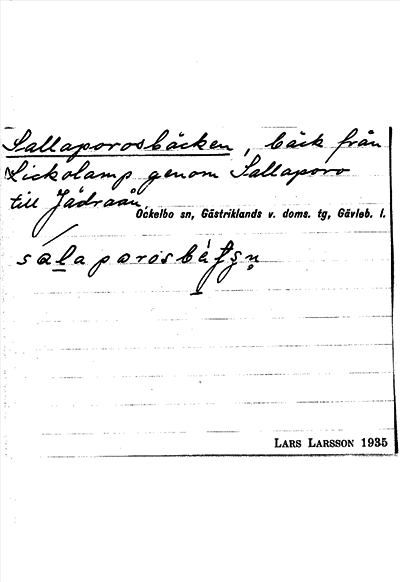 Sallaporosbäcken, bäck från
Lickolamp genom Sallaporo
till Jädraån.
Ockelbo sn, Gästriklands v. doms. tg, Gävleb. l.
LARS LARSSON 1935